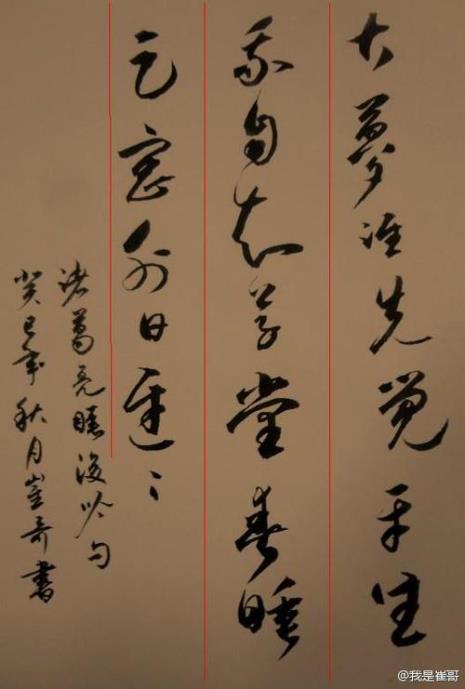 大夢谁先觉平生
我自知草堂春睡
足窗外日遲〻
诸葛亮睡後吟句
癸巳年秋月崔奇書
@我是崔哥